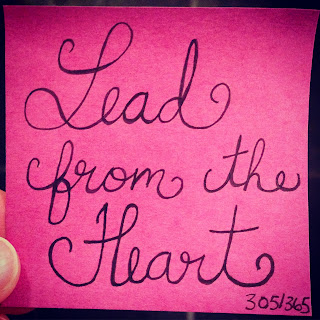 Lead
from the
Heart
305/365